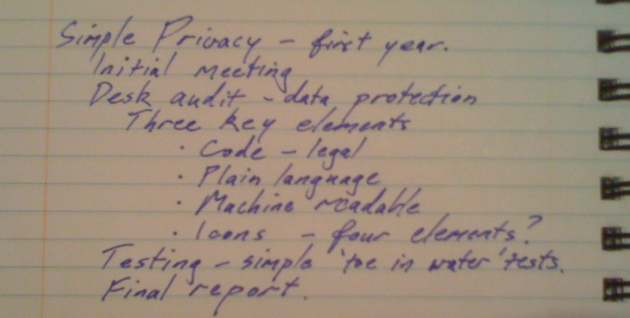 Simple Privacy - first year.
Initial meeting
Desk audit - data protection
Three key elements
· Code - legal
· Plain language
· Machine readable
· Icons - four elements?
Testing - simple 'toe in water' tests.
Final report.